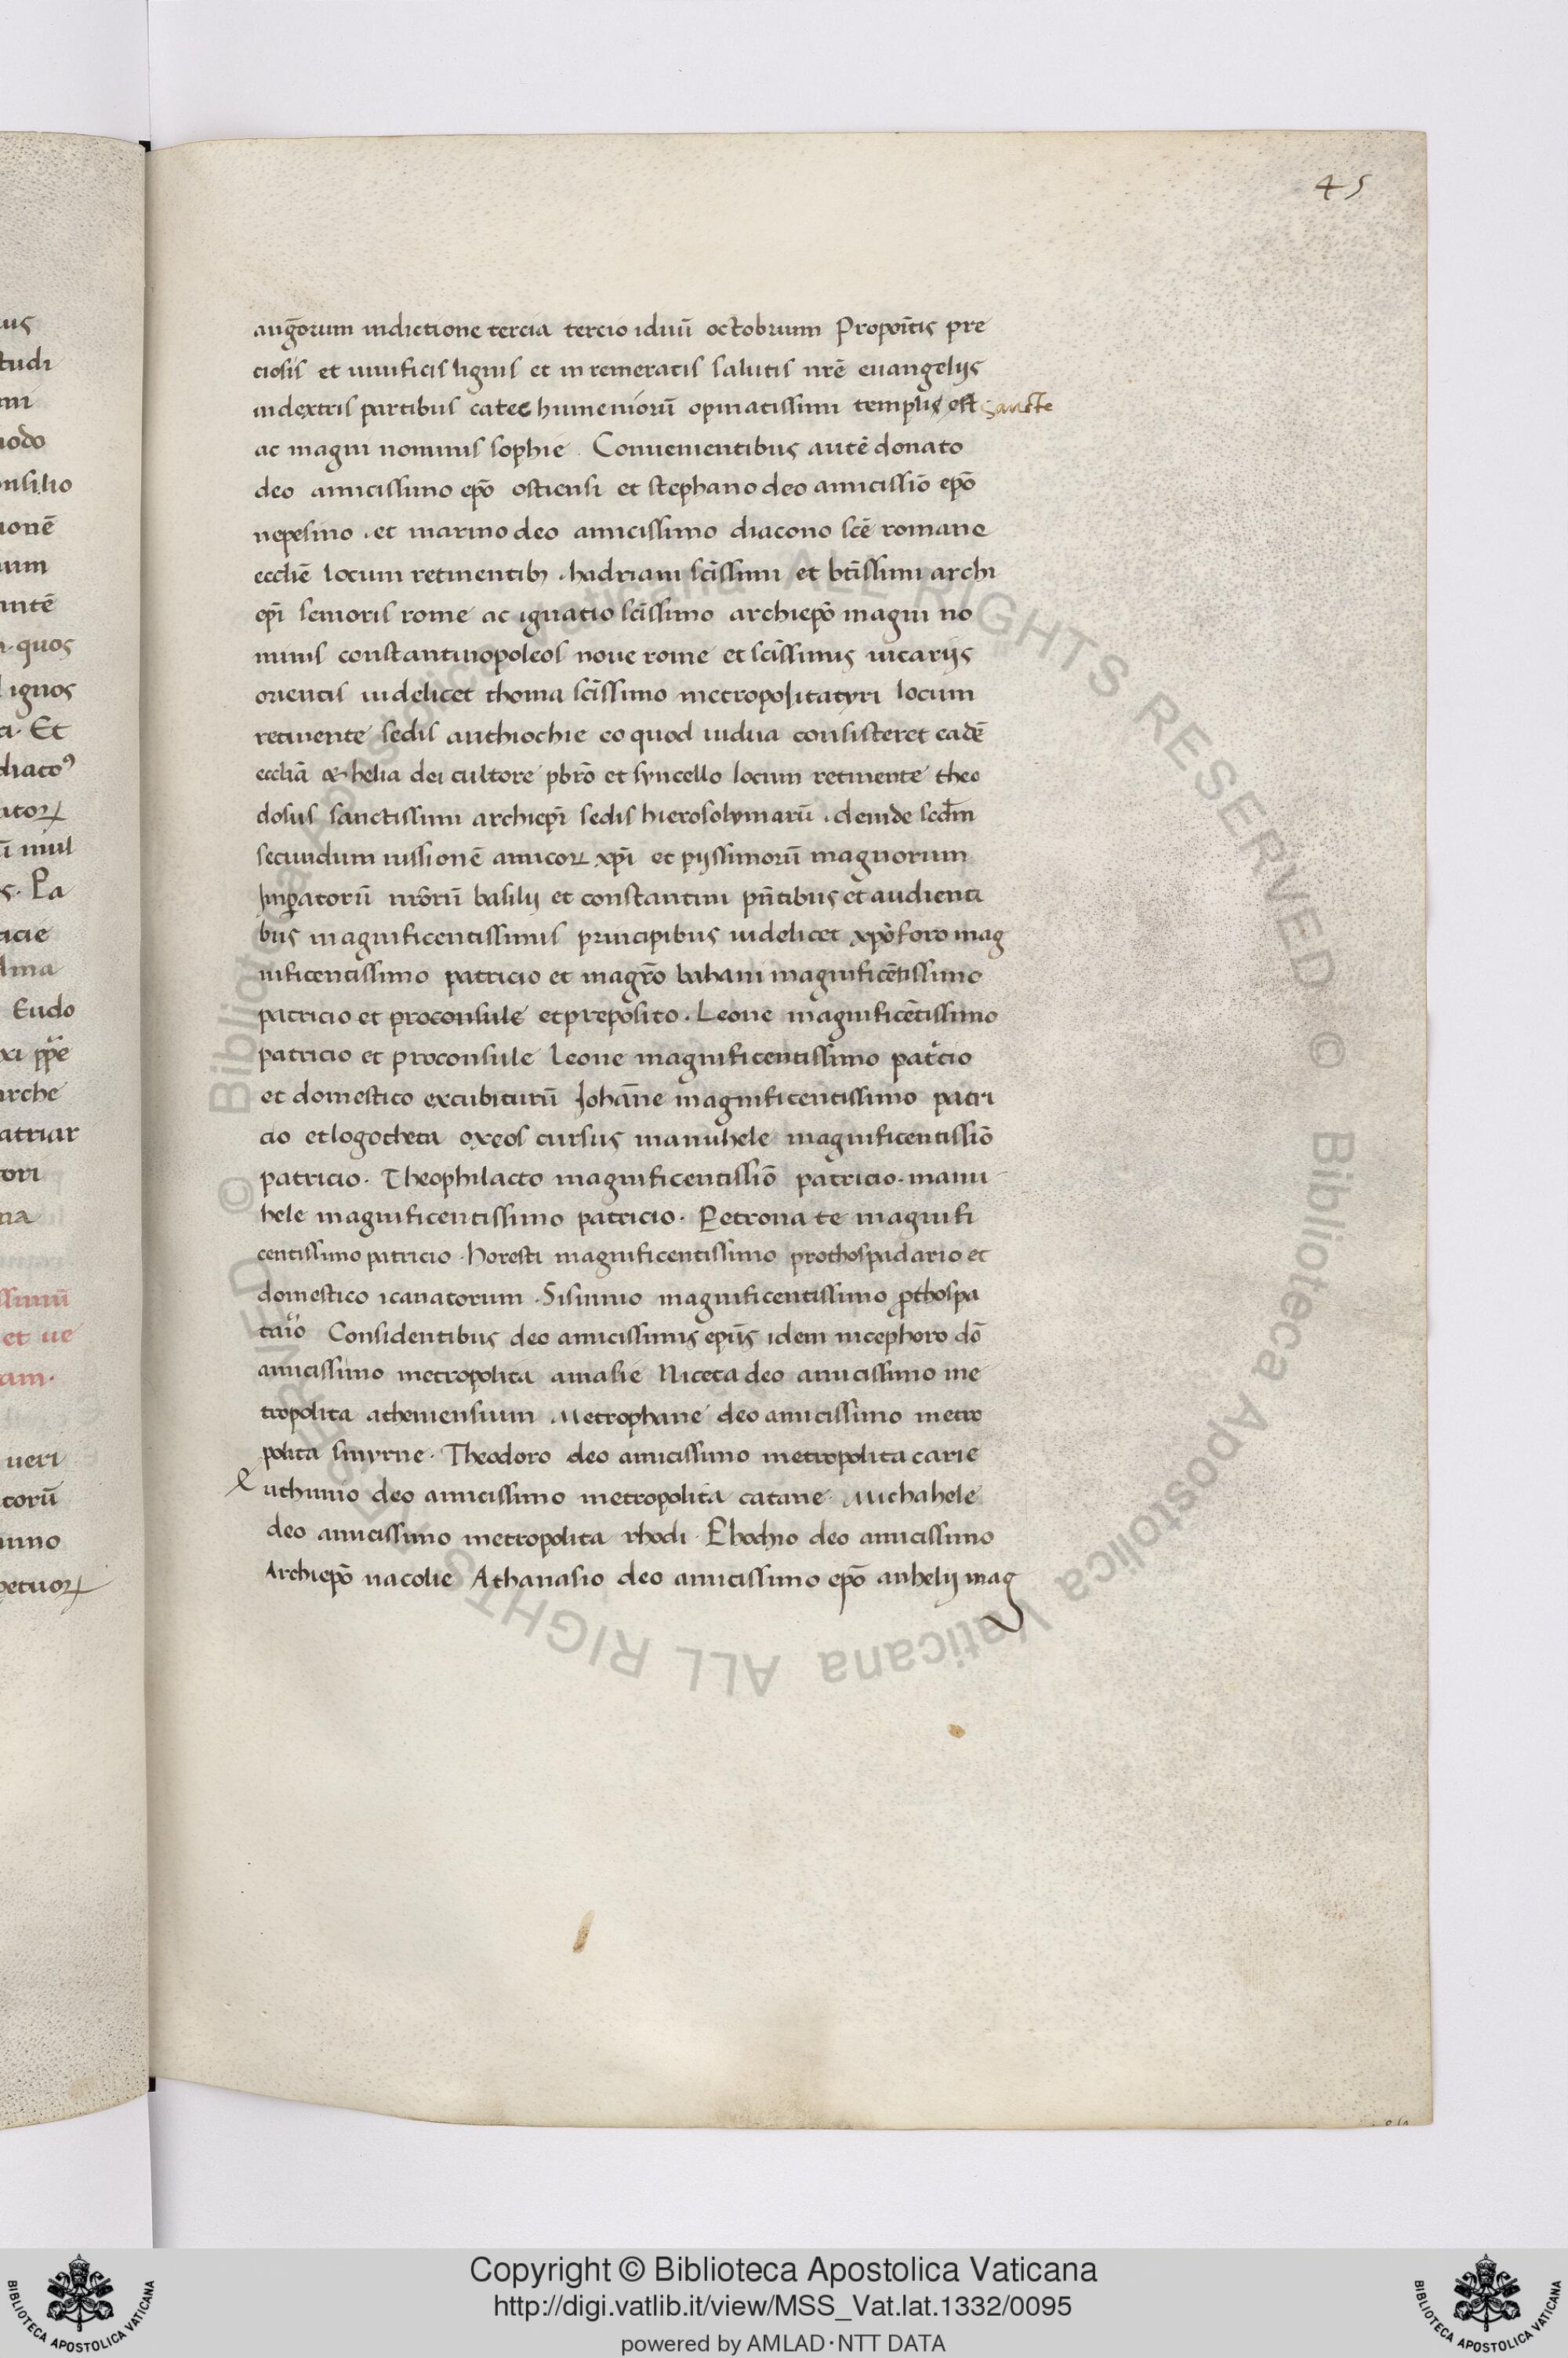 45
augr̄orum indictione tercia tercio iduū octobrium Propoītis pre
ciosis et uiuificis lignis et in remeratis salutis nr̄ē euangelijs
indextris partibus catechumeniorū opinatissimi templis est sancte
ac magni nominis sophie . Conuenientibus autē donato
deo amicissimo ep̄o ostiensi et stephano deo amicissiō ep̄o
nepesino . et marino deo amicissimo diacono sc̄ē romane
eccl̄iē locum retinentib; . hadriani sc̄issimi et bt̄issimi archi
ep̄i senioris rome ac ignatio sc̄issimo archiep̄o magni no
minis constantinopoleos noue rome et sc̄issimis uicarijs
orientis uidelicet thoma sc̄issimo metropolitatyri locum
retinente sedis anthiochie eo quod uidua consisteret eadē
eccl̄iā & helia dei cultore pb̄ro et syncello locum retinente theo
dosiis sanctissimi archiep̄i sedis hierosolymarū . deinde sc̄dm
secundum iussionē amicoꝝ xp̄i et pijssimorū magnorum
Imp̄atorū nr̄ōrū basilij et constantini pn̄tibus et audienti
bus magnificentissimis principibus uidelicet xp̄oforo mag
nificentissimo patricio et magr̄o bahani magnificētissimo
patricio et proconsule et preposito . Leone magnificētissimo
patricio et proconsule leone magnificentissimo patcio
et domestico excubiturū Johāne magnificentissimo patri
cio et logotheta oxeos cursus manuhele magnificentissiō
patricio . Theophilacto magnificentissiō patricio . manu
hele magnificentissimo patricio . Petrona te magnifi
centissimo patricio . horesti magnificentissimo prothospadario et
domestico icanatorum . Sisinnio magnificentissimo ꝓthospa
tario Considentibus deo amicissimis ep̄is idem nicephoro dō
amicissimo metropolita amasie Niceta deo amicissimo me
tropolita atheniensium Metrophane deo amicissimo metro
polita smyrne . Theodoro deo amicissimo metropolita carie
Euthimio deo amicissimo metropolita catane . Michahele
deo amicissimo metropolita rhodi . Ehochio deo amicissimo
Archiep̄o nacolie Athanasio deo amicissimo ep̄o anhelij mag
Copyright © Biblioteca Apostolica Vaticana
http://digi.vatlib.it/view/MSS_Vat.lat.1332/0095
powered by AMLAD·NTT DATA